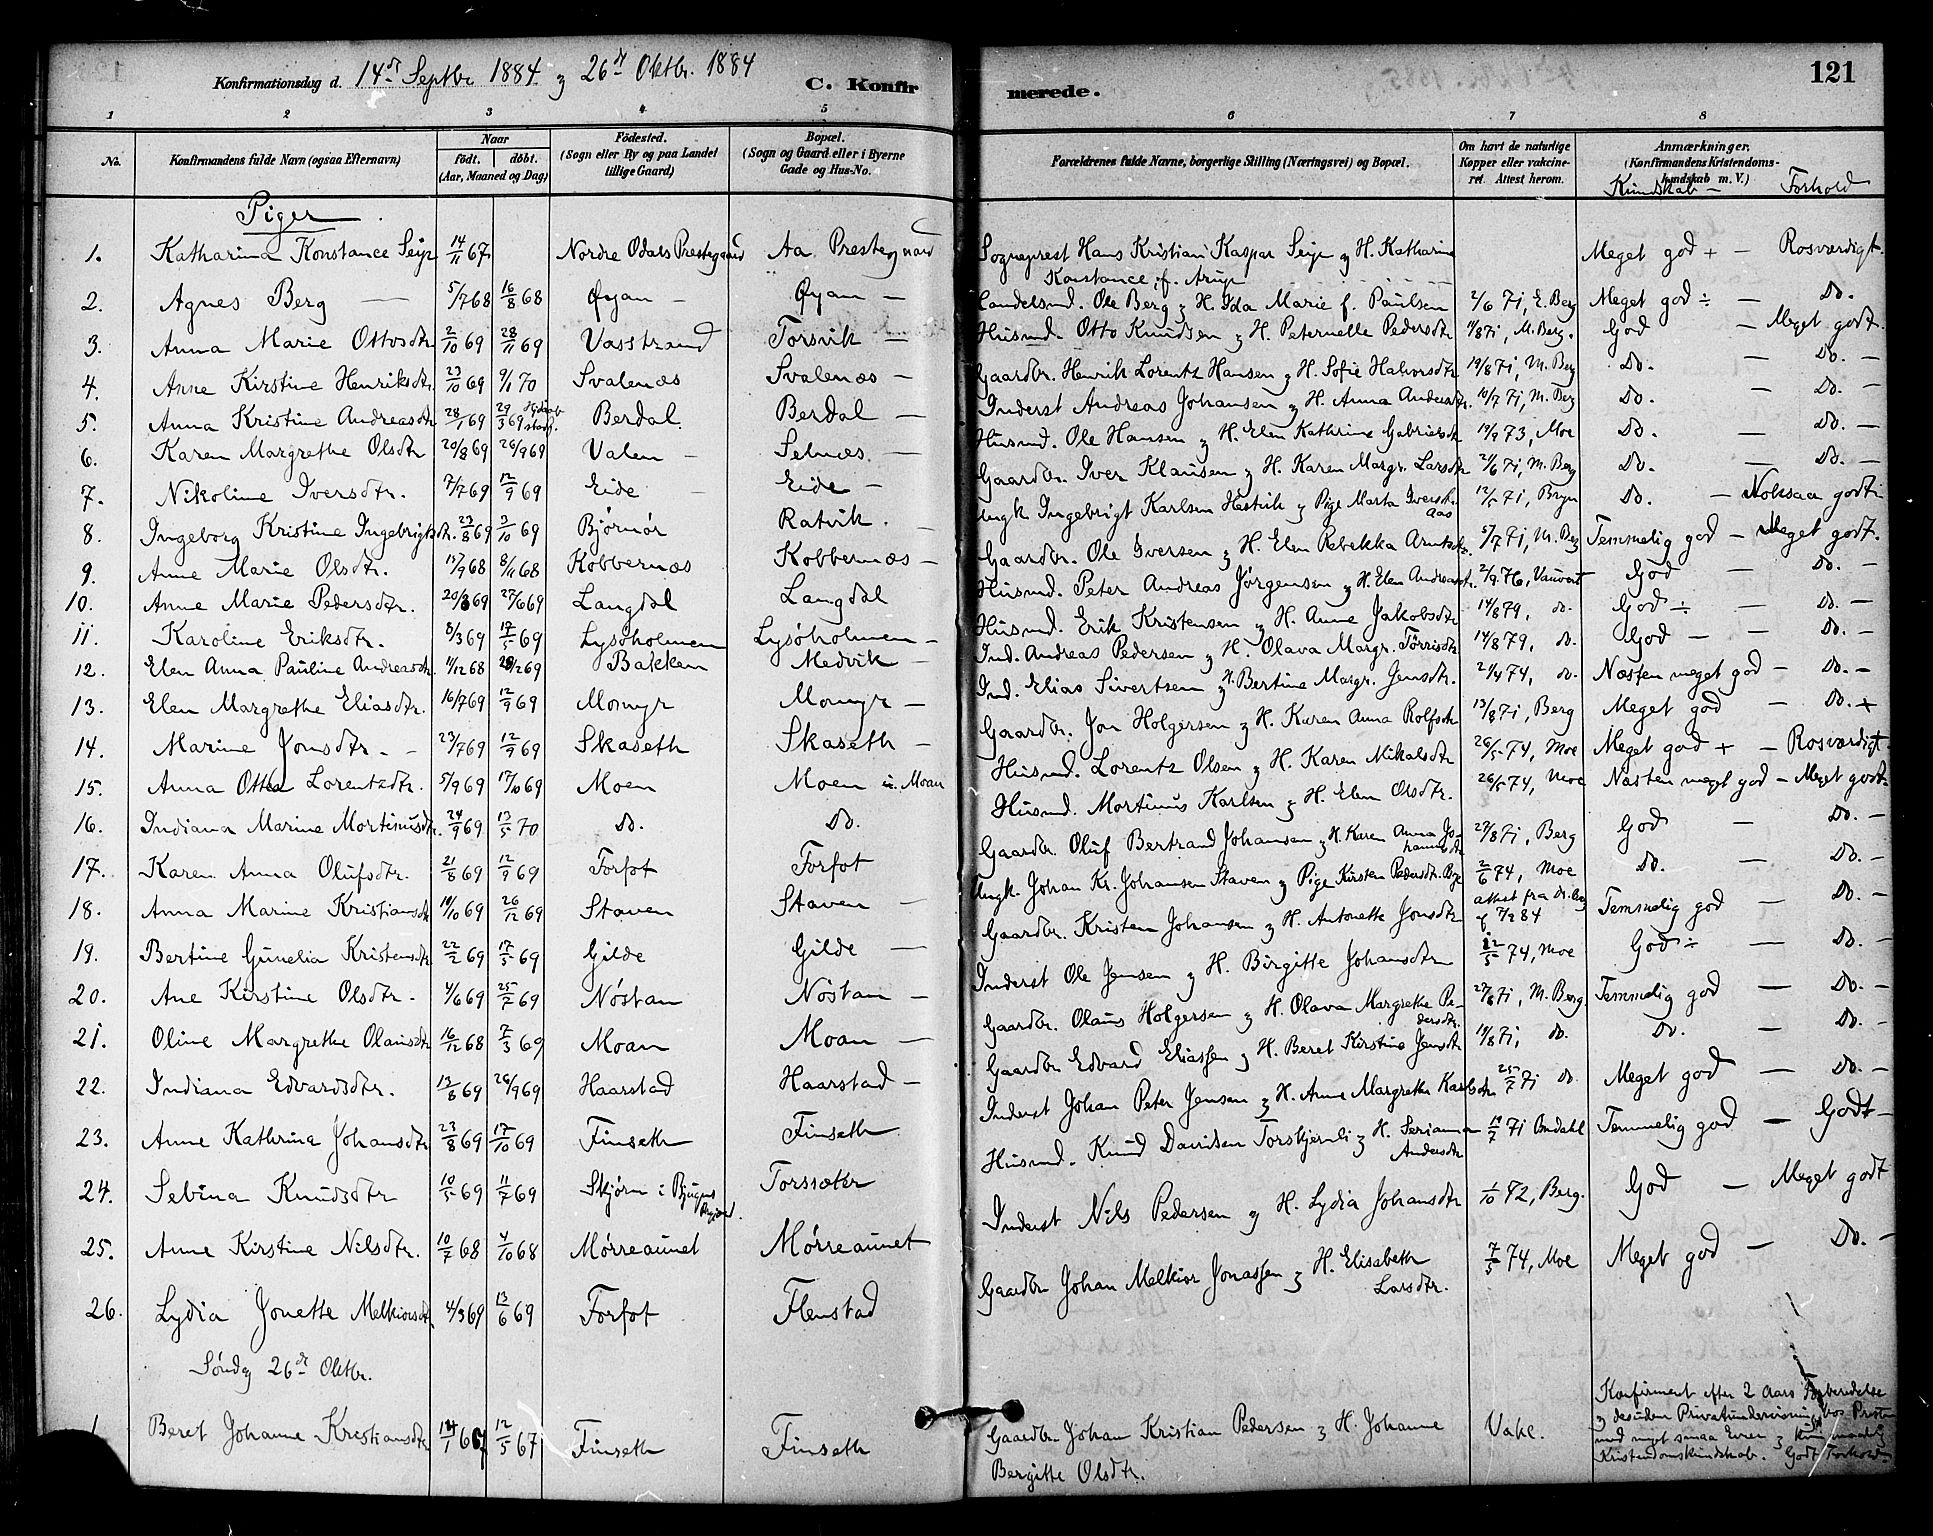 Konfirmationsdag d. 14de Septbr. 1884 & 26de Oktbr. 1884 C. Konfirmerede. 121
1 2 3 4 5 6 7 8
No. Konfirmandens fulde Navn (ogsaa Efternavn) Naar födt. döbt. (Aar, Maaned og Dag) Födested. (Sogn eller By og paa Landet tillige Gaard) Bopæl. (Sogn og Gaard eller i Byerne Gade og Hus-No. Forældrenes fulde Navne, borgerlige Stilling (Næringsvei) og Bopæl. Om havt de naturlige Kopper eller vakcineret. Attest herom. Anmærkninger, (Konfirmandens Kristendomskundskab m. V.)
Kundskab — Forhold
Piger
1. Katharina Konstance Sejp 14/11 67 Nordre Odals Prestegaard Aa Prestegaard Sogneprest Hans Kristian Kaspar Sejp & H. Katharina Konstance f. Arup Meget god + — Rosværdigt.
2. Agnes Berg — 5/7 68 16/8 68 Øyan — Øyan — Landelsmd. Ole Berg & H. Ida Marie f. Paulsen 2/6 71, E. Berg Meget god ÷ — Do.
3. Anna Marie Ottosdtr 2/10 69 28/11 69 Vasstrand Torsvik — Husmd. Otto Knudsen & H. Peternelle Pedersdtr 11/8 71, M. Berg. God — Meget godt.
4. Anne Kirstine Henriksdtr. 23/10 69 9/1 70 Svalenæs Svalenæs — Gaardbr. Henrik Lorentz Hansen & H. Sofie Halvorsdtr 19/8 71, M. Berg Do. — Do. —
5. Anna Kristine Andreasdtr 28/1 69 29/3 69 Berdal. Berdal — Inderst Andreas Johansen & H. Anna Andersdtr. 10/7 71, M. Berg Do. — Do. —
6. Karen Margrethe Olsdtr 20/8 69 26/9 69 Valen — Selnæs. — Husmd. Ole Hansen & H. Elen Kathrine Gabrielsdtr 19/9 73, Moe Do. — Do. —
7. Nikoline Iversdtr. 7/7 69 12/9 69 Eide — Eide — Gaardbr. Iver Klausen & H. Karen Margr. Larsdtr 21/6 71, M. Berg Do. — Do. —
8. Ingeborg Kristine Ingebrigtsdtr. 23/8 69 3/10 69 Bjørnør Ratvik. — Ungk Ingebrigt Karlsen Hestvik & Pige Marta Iversdtr. Aas 12/5 71, Bryn Do. — Noksaa godt
9. Anne Marie Olsdtr. 17/9 68 8/11 68 Kobbernæs Kobbernæs — Gaardbr. Ole Iversen & H. Elen Rebekka Arntsdtr. 5/7 71, M. Berg Temmelig god — Meget godt.
10. Anne Marie Pedersdtr. 20/3 69 27/6 69 Langdal Langdal Husmd. Peter Andreas Jørgensen & H. Elen Andreasdtr. 2/9 76, Vauvert God — Do. —
11. Karoline Eriksdtr. 8/3 69 17/5 69 Lysøholmen Lysøholmen — Husmd. Erik Kristensen & H. Anne Jakobsdtr 14/8 79, do. God ÷ — Do. —
12. Elen Anna Pauline Andreasdtr 11/12 68 28/2 69 Bakken Medvik — Ind. Andreas Pedersen & H. Olava Margr. Tørrisdtr 14/8 79, do. God — — Do. —
13. Elen Margrethe Eliasdtr. 16/7 69 12/9 69 Momyr Momyr — Ind. Elias Sivertsen & H. Bertine Margr. Jensdtr. 21/4 74, do. Næsten meget god — Do. —
14. Marine Jonsdtr. — 23/7 69 12/9 69 Skaseth Skaseth — Gaardbr. Jon Holgersen & H. Karen Anna Rolfsdtr 13/8 71, Berg Meget god — Do. +
15. Anna Otta Lorentsdtr. 5/9 69 17/10 69 Moen Moen Moan Husmd. Lorents Olsen & H. Karen Mikalsdtr 26/5 74, Moe Meget god + — Rosværdigt.
16. Indiana Marine Mortinusdtr. 24/9 69 13/5 70 Do. Do. Husmd. Mortinus Karlsen & H. Elen Olsdtr. 26/5 74, Moe Næsten meget god — Meget godt.
17. Karen Anna Olufsdtr. 21/8 69 12/9 69 Forfot Forfot Gaardbr. Oluf Bertrand Johansen & H. Karen Anna Johannesdtr 29/8 71, Berg God — Do. —
18. Anna Marine Kristiansdtr 14/10 69 26/12 69 Staven Staven — Ungk. Johan Kr. Johansen Staven & Pige Kirsten Pedersdtr. Bye 2/6 74, Moe Do. — Do. —
19. Bertine Gunelia Kristensdtr 22/2 69 17/5 69 Gilde Gilde — Gaardbr. Kristen Johansen & H. Antonette Jonsdtr attest fra dr. Berg af 7/2 84 Temmelig god — Do. —
20. Ane Kirstine Olsdtr. 4/6 69 25/7 69 Nøstan Nøstan — Inderst Ole Jensen & H. Birgitte Johansdtr 12/5 74, Moe God ÷ — Do. —
21. Oline Margrethe Olausdtr 16/12 68 7/3 69 Moan Moan — Gaardbr. Olaus Holgersen & H. Olava Margrethe Pedersdtr. 27/6 71, M. Berg. Temmelig god — Do. —
22. Indiana Edvardsdtr. 13/8 69 26/9 69 Haarstad Haarstad — Gaardbr Edvard Eliassen & H. Beret Kirstine Jensdtr 19/8 71, do. Do. — Do. —
23. Anne Kathrina Johansdtr 23/8 69 17/10 69 Finseth Finseth Inderst Johan Peter Jensen & H. Anne Margrethe Karlsdtr. 25/7 71 do. Meget god — Do. —
24. Sebina Knudsdtr 10/5 69 11/7 69 Skjørn i Bjugns Torssæter Husmd. Knud Davidsen Torskjernli & H. Serianna Andersdtr 19/7 71 Temmelig god — Godt —
25. Anne Kirstine Nilsdtr. 10/7 68 4/10 68 Mørreaunet Mørreaunet Inderst Nils Pedersen & H. Lydia Johansdtr 1/10 72, Berg. God — Meget godt
26. Lydia Jonette Melkiorsdtr 4/3 69 13/6 69 Forfot Flenstad Gaardbr Johan Melkior Jonassen & H. Elisabeth Larsdtr. 7/5 74, Moe Meget god — Do. —
Søndag 26de Oktbr.
1 Beret Johanne Kristiansdtr 14/1 67 12/5 67 Finseth Finseth Gaardbr. Johan Kristian Pedersen & H. Johanne Bergitte Olsdtr. Vakc. Konfirmert efter 2 Aars Forberedelse
& desuden Privatundervisning hos Presten
med meget smaa Evner & kun maadelig
Kristendomskundskab. Godt Forhold.